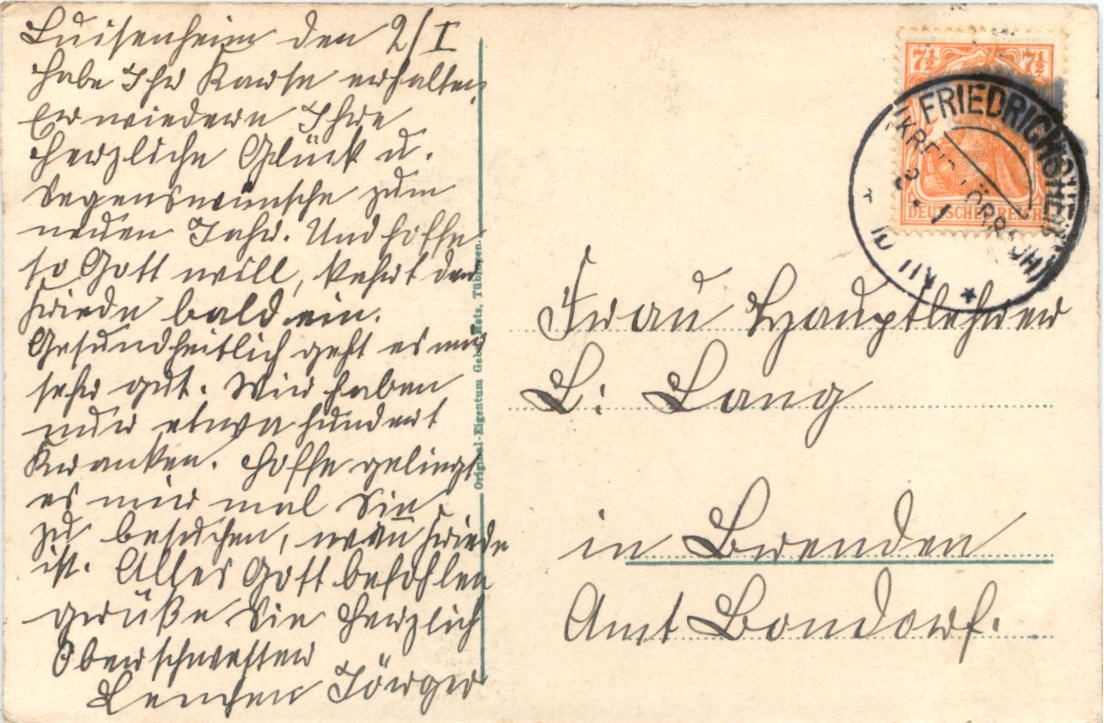 Luisenheim den 2/I
Habe Ihr Karte erhalten,
Erwiedern Ihre
herzliche Glück u.
Segenswünsche zum
neuen Jahr. Und hoffe
so Gott will, kehrt der
Friede bald ein.
Gesundheitlich geht es mir
sehr gut. Wir haben
nur etwa hundert
Kranken. Hoffe gelingt
es mir mal Sie
zu besuchen, wan̄ Friede
ist. Alles Gott befohlen
grüße Sie herzlich
Oberschwester
Lenchen Jörger
Original-Eigentum Gebr. Metz, Tübingen.
7½ 7½
DEUTSCHES REICH
FRIEDRICHSHEIM
2. 1
Frau Hauptlehrer
L: Lang
in Brenden
Amt Bondorf.